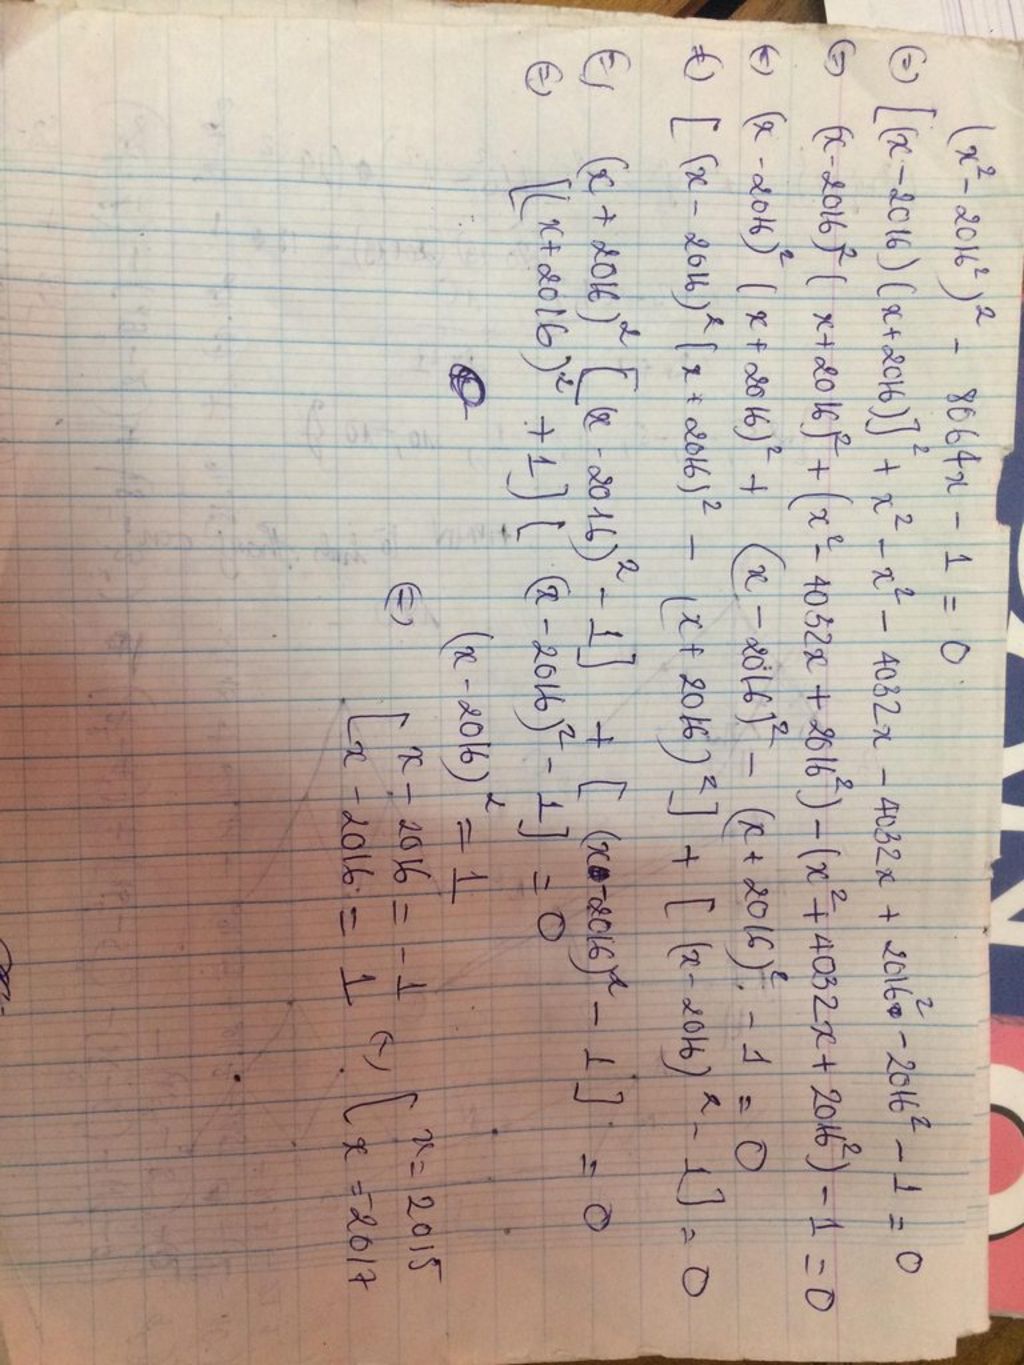 (x² - 2016²)² - 8064x - 1 = 0
(=) [(x - 2016)(x + 2016)]² + x² - x² - 4032x - 4032x + 2016² - 2016² - 1 = 0
(=) (x - 2016)² (x + 2016)² + (x² - 4032x + 2016²) - (x² + 4032x + 2016²) - 1 = 0
(=) (x - 2016)² (x + 2016)² + (x - 2016)² - (x + 2016)² - 1 = 0
(=) [(x - 2016)² (x + 2016)² - (x + 2016)²] + [(x - 2016)² - 1] = 0
(=) (x + 2016)² [(x - 2016)² - 1] + [(x - 2016)² - 1] = 0
(=) [(x + 2016)² + 1] [(x - 2016)² - 1] = 0
(x - 2016)² = 1
(=) [ x - 2016 = -1 (=) [ x = 2015
x - 2016 = 1 x = 2017